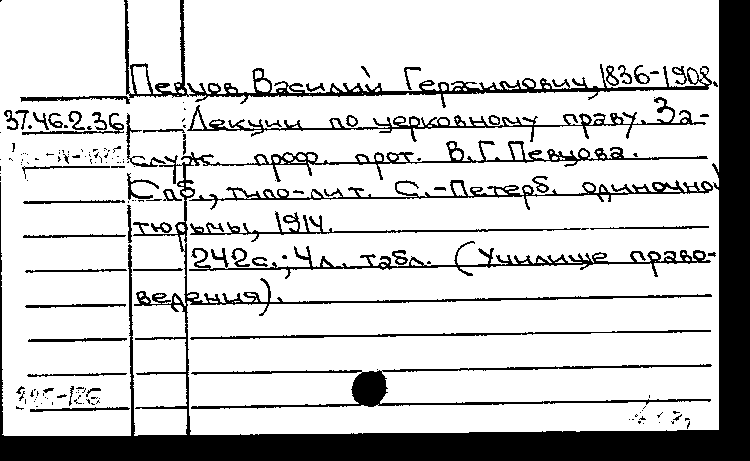 Певцов, Василий Герасимович, 1836-1908.
37.46.2.36 Лекции по церковному праву. За-
служ. проф. прот. В.Г. Певцова.
Спб., типо-лит. С.-Петерб. одиночной
тюрьмы, 1914.
242с.; 4л. табл. (Училище право-
ведения).